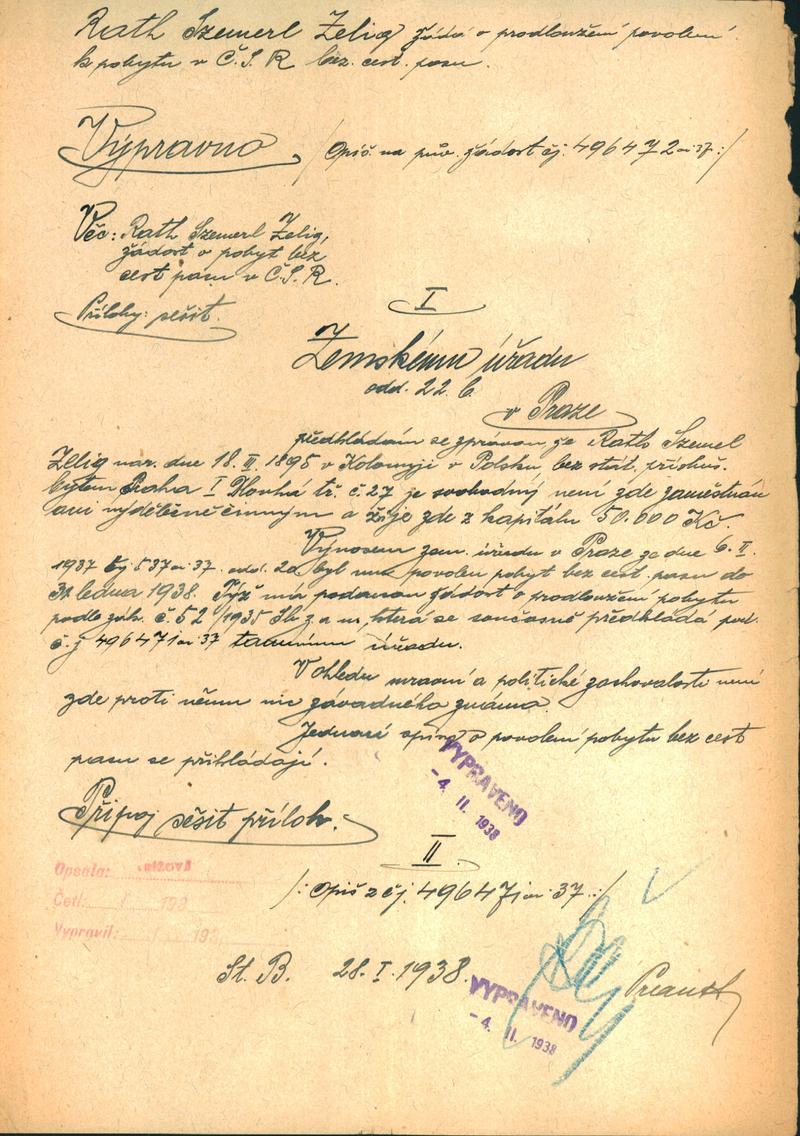 Rath Szemerl Zelig žádá o prodloužení povolení
k pobytu v Č.S.R bez. cest. pasu.
Výpravna /opiš. na pův. žádost čj. 496472 ai 37:/
Věc: Rath Szemerl Zelig,
žádost o pobyt bez
cest pasu v Č.S.R.
Přílohy: sešit.
I
Zemskému úřadu
odd. 22 b.
v Praze
předkládám se zprávou, že Rath Szemel
Zelig nar. dne 18. III 1895 v Kolomyji v Polsku, bez stát. přísluš.
bytem Praha I Dlouhá tř. č. 27 je svobodný není zde zaměstnán
ani výdělečně činným a žije zde z kapitálu 50.000 Kč.
Výnosem zem. úřadu v Praze ze dne 6. II.
1937 čj 537 ai 37. odd. 2a byl mu povolen pobyt bez cest. pasu do
31 ledna 1938. Týž má podanou žádost o prodloužení pobytu
podle zák. č. 52/1935 Sb z a n, která se současně předkládá pod.
č.j 496471 ai 37 tamnímu úřadu.
V ohledu mravní a politické zachovalosti není
zde proti němu nic závadného známo.
Jednací spisy o povolení pobytu bez cest
pasu se přikládají.
VYPRAVENO
- 4. II. 1938
Připoj sešit příloh.
II
Opsala:
Četl: 193
Vypravil: 193
/: Opiš z čj. 496471 ai 37.:/
St. B. 28. I. 1938.
VYPRAVENO
- 4. II. 1938